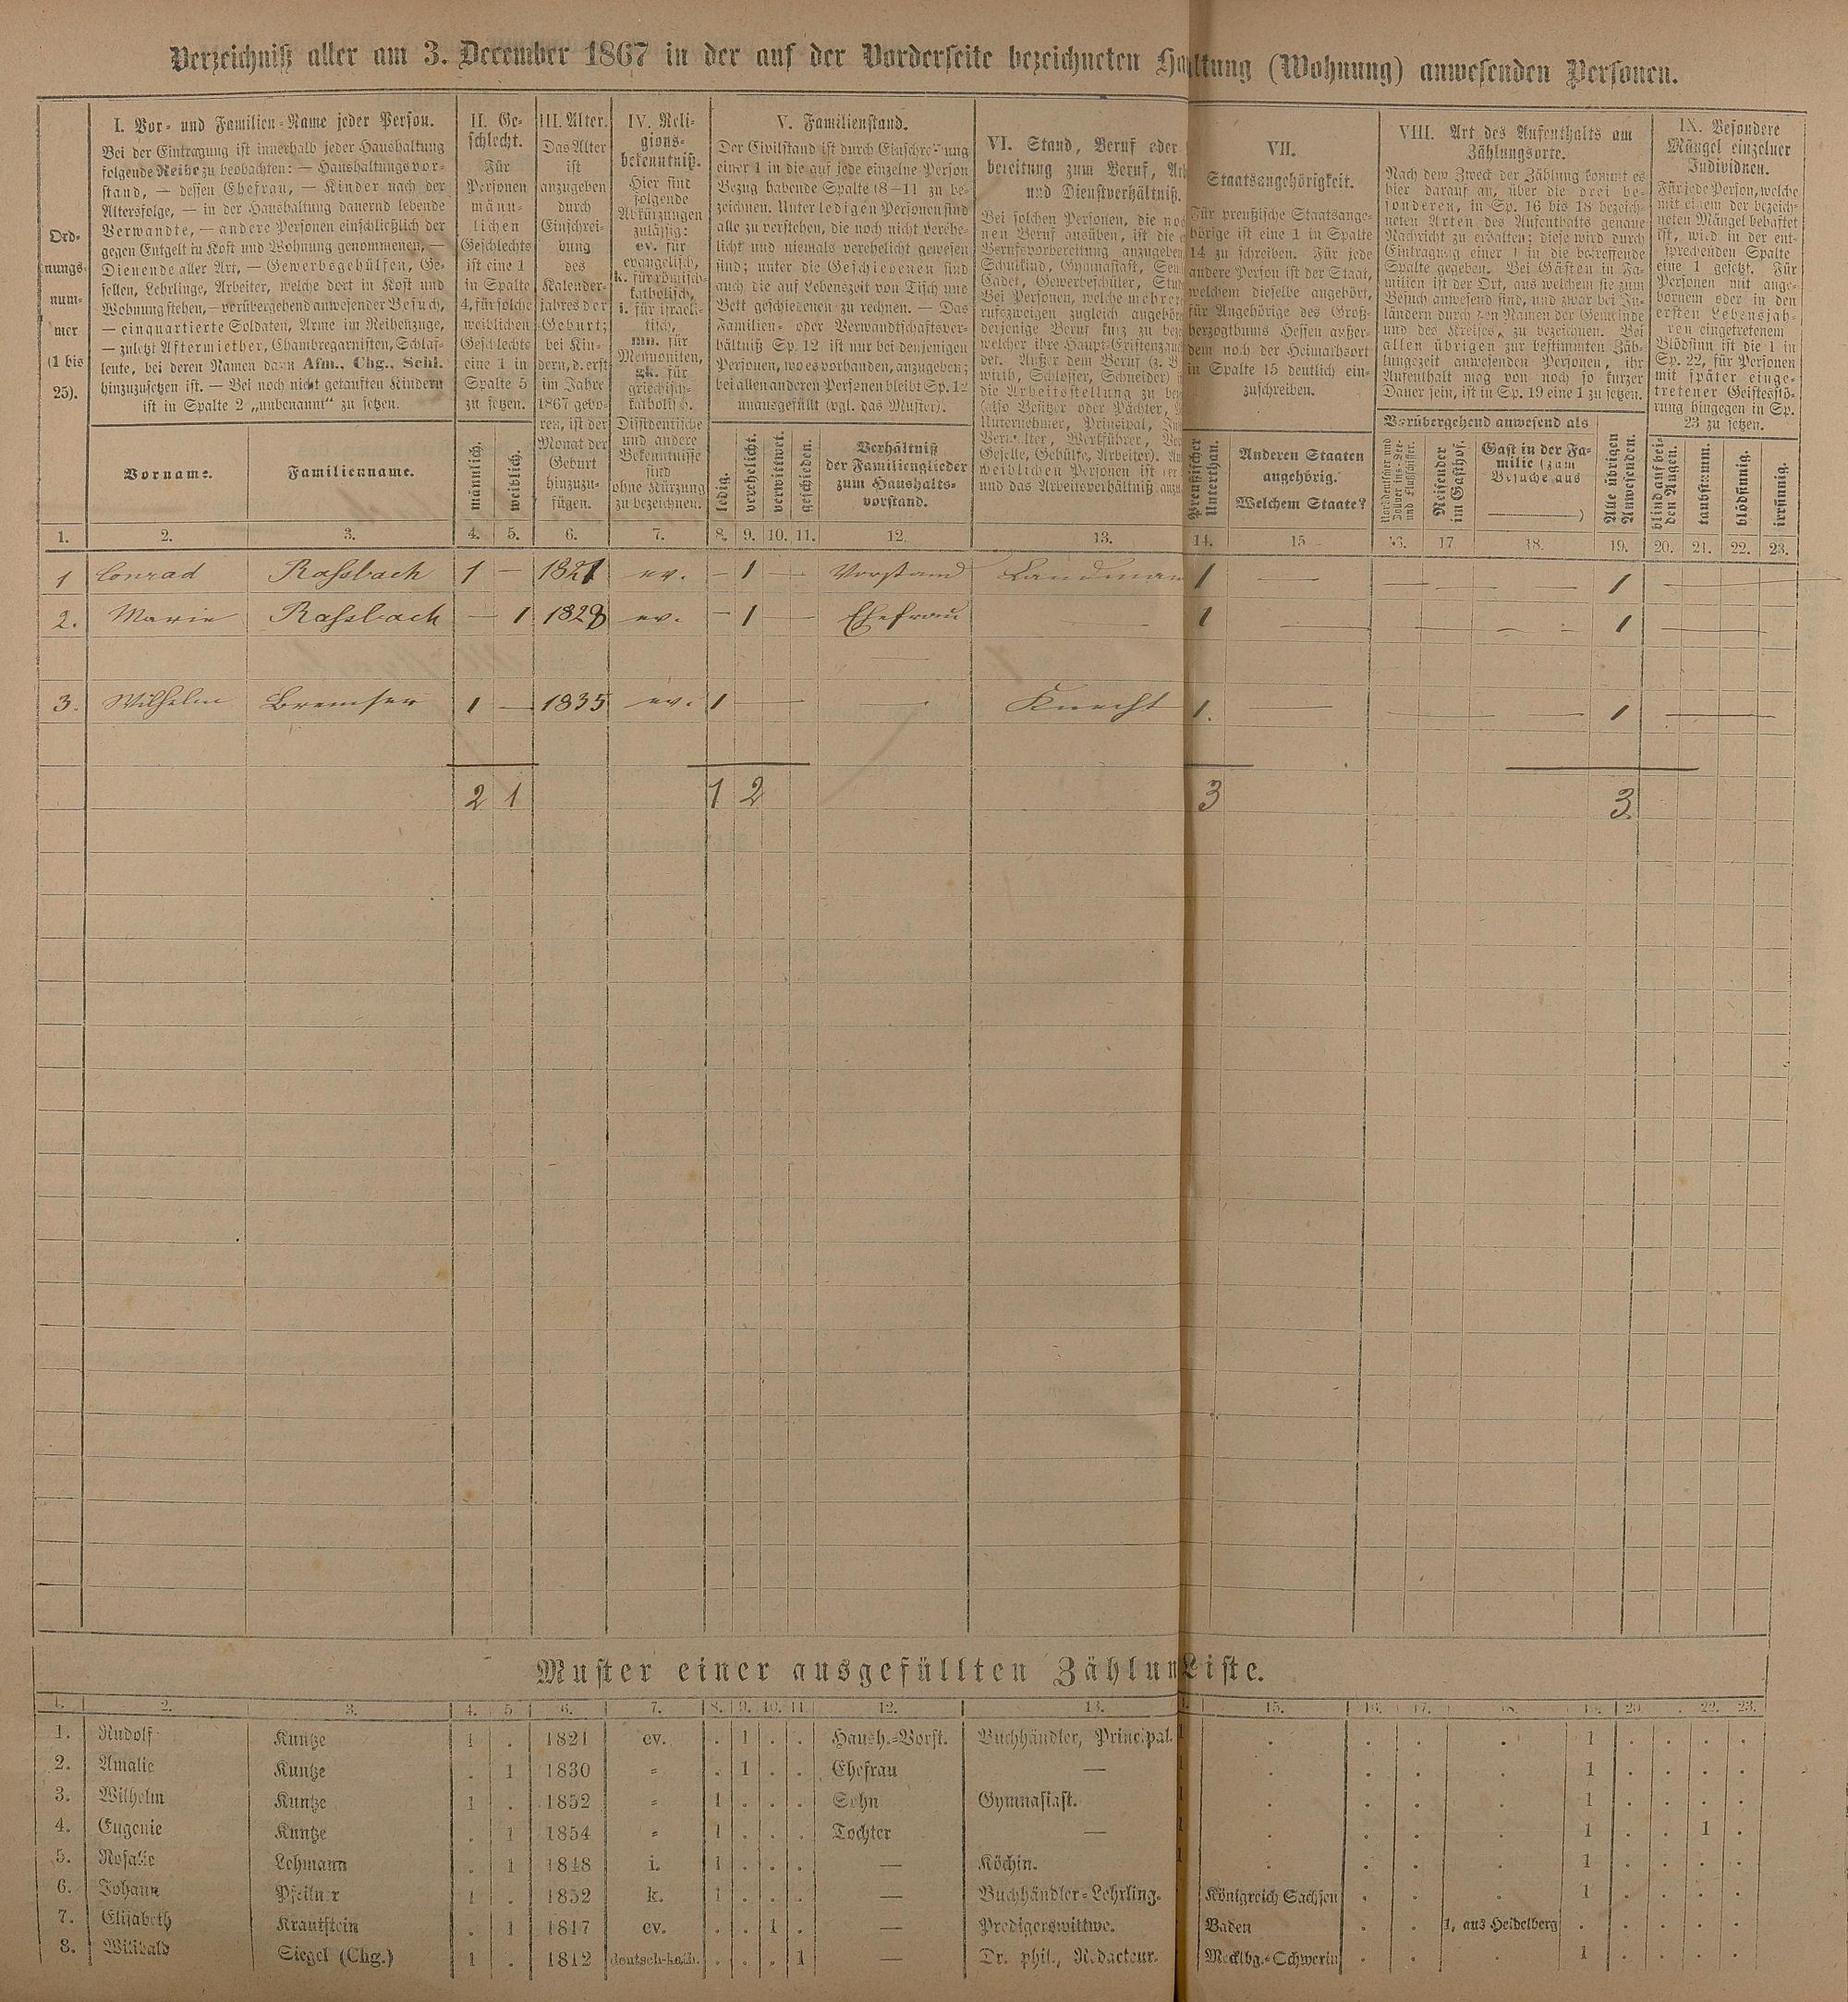 Verzeichniß aller am 3. December 1867 in der auf der Vorderseite bezeichneten Haltung (Wohnung) anwesenden Personen.
Ord-
nungs-
num-
mer
(1 bis
25).
I. Vor- und Familien-Name jeder Person.
Bei der Eintragung ist innerhalb jeder Haushaltung
folgende Reihe zu beobachten: — Haushaltungsvor-
stand, — dessen Ehefrau, — Kinder nach der
Altersfolge, — in der Haushaltung dauernd lebende
Verwandte, — andere Personen einschließlich der
gegen Entgelt in Kost und Wohnung genommenen, —
Dienende aller Art, — Gewerbsgehülfen, Ge-
sellen, Lehrlinge, Arbeiter, welche dort in Kost und
Wohnung stehen, — vorübergehend anwesender Besuch,
— einquartierte Soldaten, Arme im Reihenzuge,
— zuletzt Aftermiether, Chambregarnisten, Schlaf-
leute, bei deren Namen dann Afm., Chg., Schl.
hinzuzusetzen ist. — Bei noch nicht getauften Kindern
ist in Spalte 2 „unbenannt“ zu setzen.
Vorname.
Familienname.
II. Ge-
schlecht.
Für
Personen
männ-
lichen
Geschlechts
ist eine 1
in Spalte
4, für solche
weiblichen
Geschlechts
eine 1 in
Spalte 5
zu setzen.
männlich.
weiblich.
III. Alter.
Das Alter
ist
anzugeben
durch
Einschrei-
bung
des
Kalender-
jahres der
Geburt;
bei Kin-
dern, d. erst
im Jahre
1867 gebo-
ren, ist der
Monat der
Geburt
hinzuzu-
fügen.
IV. Reli-
gions-
bekenntniß.
Hier sind
folgende
Abkürzungen
zulässig:
ev. für
evangelisch,
k. für römisch-
katholisch,
i. für israeli-
tisch,
mn. für
Mennoniten,
gk. für
griechisch-
katholisch.
Dissidentische
und andere
Bekenntnisse
sind
ohne Kürzung
zu bezeichnen.
V. Familienstand.
Der Civilstand ist durch Einschreibung
einer 1 in die auf jede einzelne Person
Bezug habende Spalte (8—11) zu be-
zeichnen. Unter ledigen Personen sind
alle zu verstehen, die noch nicht verehe-
licht und niemals verehelicht gewesen
sind; unter die Geschiedenen sind
auch die auf Lebenszeit von Tisch und
Bett geschiedenen zu rechnen. — Das
Familien- oder Verwandtschaftsver-
hältniß Sp. 12 ist nur bei denjenigen
Personen, wo es vorhanden, anzugeben;
bei allen anderen Personen bleibt Sp. 12
unausgefüllt (vgl. das Muster).
ledig.
verehelicht.
verwittwet.
geschieden.
Verhältniß
der Familienglieder
zum Haushalts-
vorstand.
VI. Stand, Beruf oder
bereitung zum Beruf,
und Dienstverhältniß.
Bei solchen Personen, die
nen Beruf ausüben, ist die
Berufsvorbereitung anzugeben
Schulkind, Gymnasiast,
Cadet, Gewerbeschüler,
Bei Personen, welche
rufszweigen zugleich
derjenige Beruf kurz zu
welcher ihre
der. Außer dem Beruf (z. B.
wirth, Schlosser, Schneider)
die Arbeitsstellung zu
(also Besitzer oder Pächter,
Unternehmer, Principal,
Verwalter, Werkführer,
Geselle, Gehülfe, Arbeiter).
weiblichen Personen ist
und das Arbeitsverhältniß
VII.
Staatsangehörigkeit.
Für preußische Staatsange-
hörige ist eine 1 in Spalte
14 zu schreiben. Für jede
andere Person ist der Staat,
welchem dieselbe angehört,
für Angehörige des Groß-
herzogthums Hessen außer-
dem noch der Heimathsort
in Spalte 15 deutlich ein-
zuschreiben.
Preußischer
Unterthan.
Anderen Staaten
angehörig.
Welchem Staate?
VIII. Art des Aufenthalts am
Zählungsorte.
Nach dem Zweck der Zählung kommt es
hier darauf an, über die drei be-
sonderen, in Sp. 16 bis 18 bezeich-
neten Arten des Aufenthalts genaue
Nachricht zu erhalten; diese wird durch
Eintragung einer 1 in die betreffende
Spalte gegeben. Bei Gästen in Fa-
milien ist der Ort, aus welchem sie zum
Besuch anwesend sind, und zwar bei In-
ländern durch den Namen der Gemeinde
und des Kreises, zu bezeichnen. Bei
allen übrigen zur bestimmten Zäh-
lungszeit anwesenden Personen, ihr
Aufenthalt mag von noch so kurzer
Dauer sein, ist in Sp. 19 eine 1 zu setzen.
Vorübergehend anwesend als
Reisender
im Gasthof.
Gast in der Fa-
milie (zum
Besuche aus
)
Alle übrigen
Anwesenden.
IX. Besondere
Mängel einzelner
Individuen.
Für jede Person, welche
mit einem der bezeich-
neten Mängel behaftet
ist, wird in der ent-
sprechenden Spalte
eine 1 gesetzt. Für
Personen mit ange-
bornem oder in den
ersten Lebensjah-
ren eingetretenem
Blödsinn ist die 1 in
Sp. 22, für Personen
mit später einge-
tretener Geistesstö-
rung hingegen in Sp.
23 zu setzen.
blind auf bei-
den Augen.
taubstumm.
blödsinnig.
irrsinnig.
1. 2. 3. 4. 5. 6. 7. 8. 9. 10. 11. 12. 13. 14. 15 16. 17 18. 19. 20. 21. 22. 23.
1 Conrad Rassbach 1 — 1821 ev. — 1 — Vorstand Landman 1 — — — 1 —
2. Marie Rassbach — 1 1828 ev. — 1 — Ehefrau 1 — — — 1 —
3. Wilhelm Bremser 1 — 1835 ev. 1 — Knecht 1. — — — 1 —
2 1 1 2 3 3.
Muster einer ausgefüllten ZählunListe.
1. 2. 3. 4. 5. 6. 7. 8. 9. 10. 11. 12. 13. 15. 16. 17. 18. 19. 20 22. 23.
1. Rudolf Kuntze 1 . 1821 ev. . 1 . . Haush.-Vorst. Buchhändler, Principal. 1 . . . . 1 . . . .
2. Amalie Kuntze . 1 1830 = . 1 . . Ehefrau — 1 . . . . 1 . . . .
3. Wilhelm Kuntze 1 . 1852 = 1 . . . Sohn Gymnasiast. 1 . . . . 1 . . . .
4. Eugenie Kuntze . 1 1854 = 1 . . . Tochter — 1 . . . . 1 . . 1 .
5. Rosalie Lehmann . 1 1848 i. 1 . . . — Köchin. 1 . . . . 1 . . . .
6. Johann Pfeilner 1 . 1852 k. 1 . . . — Buchhändler-Lehrling. Königreich Sachsen . . . 1 . . . .
7. Elisabeth Krautstein . 1 1817 ev. . . 1 . — Predigerswittwe. Baden . . 1, aus Heidelberg . . . . .
8. Willibald Siegel (Chg.) 1 . 1812 deutsch-kath. . . . 1 — Dr. phil., Redacteur. Mecklbg.-Schwerin . . . 1 . . . .